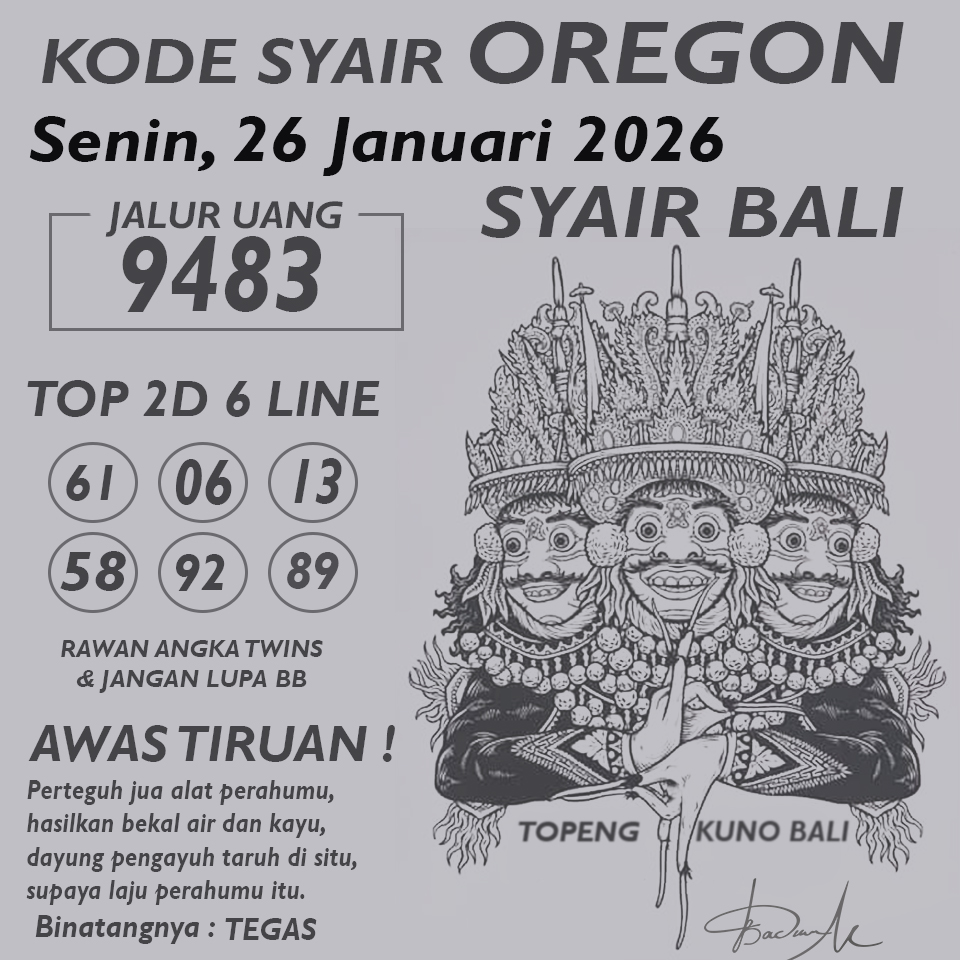 KODE SYAIR OREGON
Senin, 26 Januari 2026
SYAIR BALI
JALUR UANG
9483
TOP 2D 6 LINE
61 06 13
58 92 89
RAWAN ANGKA TWINS
& JANGAN LUPA BB
AWAS TIRUAN !
Perteguh jua alat perahumu,
hasilkan bekal air dan kayu,
dayung pengayuh taruh di situ,
supaya laju perahumu itu.
Binatangnya : TEGAS
TOPENG KUNO BALI